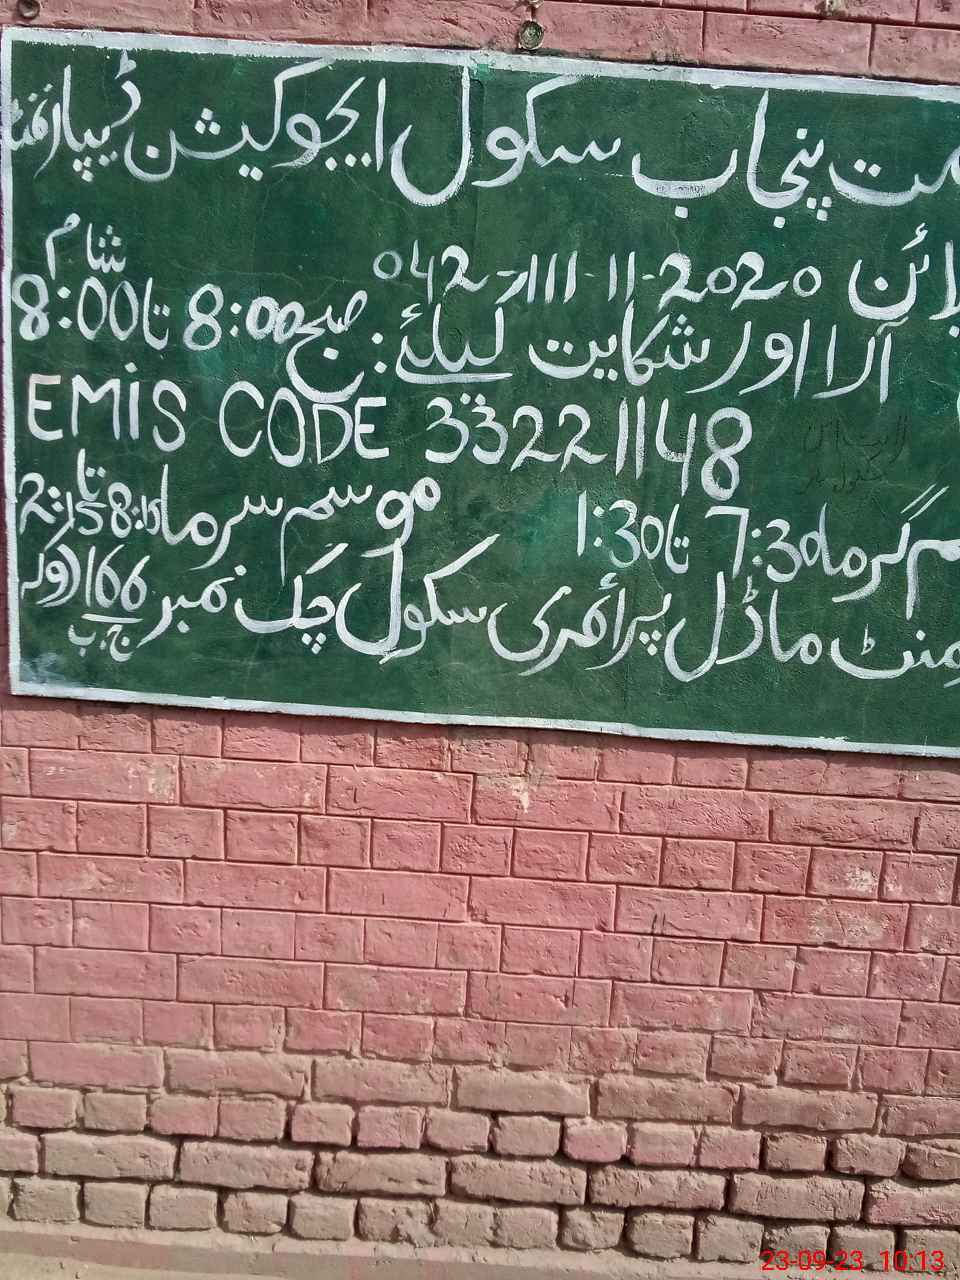 حکومت پنجاب سکول ایجوکیشن ڈیپارٹمنٹ
لائن 042-111-11-2020
آرا اور شکایت کیلئے: صبح 8:00 تا 8:00 شام
EMIS CODE 33221148
موسم گرما 7:30 تا 1:30 موسم سرما 8:15 تا 2:15
گورنمنٹ ماڈل پرائمری سکول چک نمبر 166 ج۔ب
23-09-23 10:13